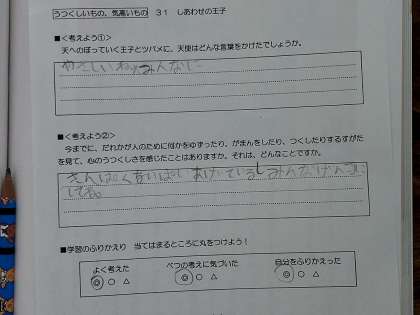 うつくしいもの、気高いもの 31 しあわせの王子
■<考えよう①>
天へのぼっていく王子とツバメに、天使はどんな言葉をかけたでしょうか。
やさしいね みんなに
■<考えよう②>
今までに、だれかが人のために何かをゆずったり、がまんをしたり、つくしたりするすがた
を見て、心のうつくしさを感じたことはありますか。それは、どんなことですか。
あげているし みんな
■学習のふりかえり 当てはまるところに丸をつけよう!
よく考えた べつの考えに気づいた 自分をふりかえった
◎ ○ △ ◎ ○ △ ◎ ○ △